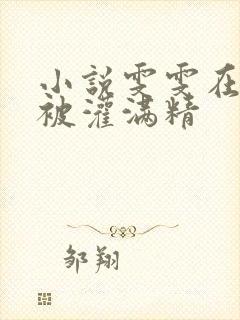 小說雯雯在
被灌满精
邹翔